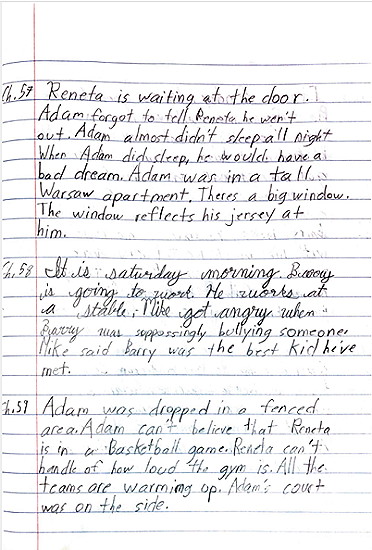 Ch. 57 Reneta is waiting at the door.
Adam forgot to tell Reneta he wen't
out. Adam almost didn't sleep all night
When Adam did sleep, he would have a
bad dream. Adam was in a tall
Warsaw apartment. Theres a big window.
The window reflects his jersey at
him.
Ch. 58 It is saturday morning. Barry
is going to work. He works at
a stable. Mike got angry when
Barry was supposingly bullying someone.
Mike said Barry was the best kid he've
met.
Ch. 59 Adam was dropped in a fenced
area. Adam can't believe that Reneta
is in a Basketball game. Reneta can't
handle of how loud the gym is. All the
teams are warming up. Adam's court
was on the side.